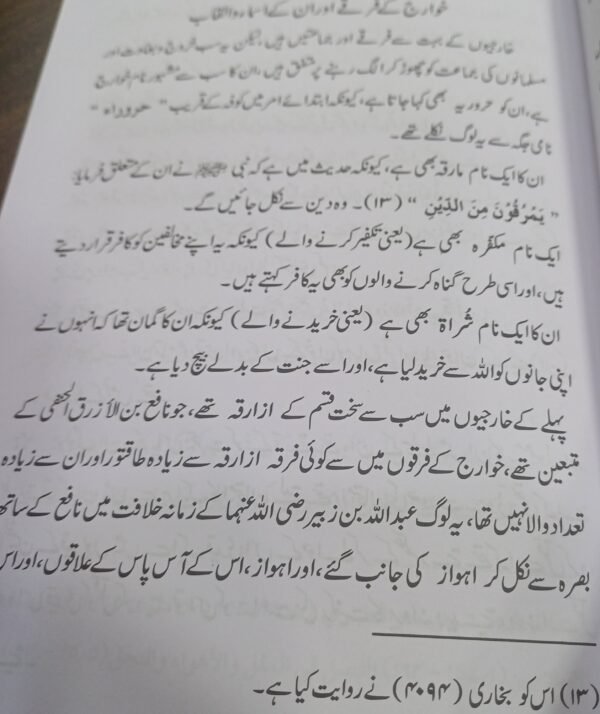 خوارج کے فرقے اور ان کے اسماء و القاب
خارجیوں کے بہت سے فرقے اور جماعتیں ہیں، لیکن یہ سب خروج و بغاوت اور
مسلمانوں کی جماعت کو چھوڑ کر الگ رہنے پر متفق ہیں، ان کا سب سے مشہور نام خوارج
ہے، ان کو حروریہ بھی کہا جاتا ہے، کیونکہ ابتدائے امر میں کوفہ کے قریب "حروراء"
نامی جگہ سے یہ لوگ نکلے تھے۔
ان کا ایک نام مارقہ بھی ہے، کیونکہ حدیث میں ہے کہ نبی ﷺ نے ان کے متعلق فرمایا:
"يَمْرُقُوْنَ مِنَ الدِّيْنِ" (۱۳)۔ وہ دین سے نکل جائیں گے۔
ایک نام مکفّرہ بھی ہے (یعنی تکفیر کرنے والے) کیونکہ یہ اپنے مخالفین کو کافر قرار دیتے
ہیں، اور اسی طرح گناہ کرنے والوں کو بھی یہ کافر کہتے ہیں۔
ان کا ایک نام شُراة بھی ہے (یعنی خریدنے والے) کیونکہ ان کا گمان تھا کہ انہوں نے
اپنی جانوں کو اللہ سے خرید لیا ہے، اور اسے جنت کے بدلے بیچ دیا ہے۔
پہلے کے خارجیوں میں سب سے سخت قسم کے ازارقہ تھے، جو نافع بن الأزرق الحنفی کے
متبعین تھے، خوارج کے فرقوں میں سے کوئی فرقہ ازارقہ سے زیادہ طاقتور اور ان سے زیادہ
تعداد والا نہیں تھا، یہ لوگ عبداللہ بن زبیر رضی اللہ عنہما کے زمانہ خلافت میں نافع کے ساتھ
بصرہ سے نکل کر اہواز کی جانب گئے، اور اہواز، اس کے آس پاس کے علاقوں، اور اس
(۱۳) اس کو بخاری (۴۰۹۴) نے روایت کیا ہے۔